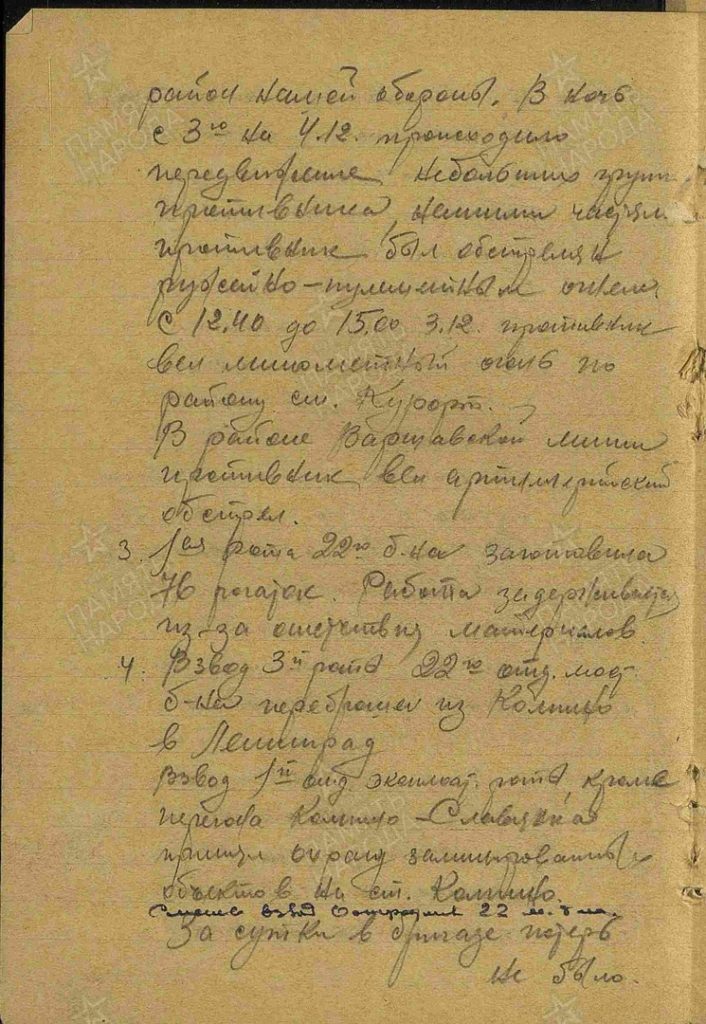 район нашей обороны. В ночь
с 3го на 4.12. происходило
передвижение небольших групп
противника, нашими частями
противник был обстрелян
ружейно-пулеметным огнем.
С 12.40 до 15.00 3.12. противник
вел минометный огонь по
району ст. Курорт.
В районе Варшавской линии
противник вел артиллерийский
обстрел.
3. 1ая рота 22го б-на заготовила
76 рогаток. Работа задерживается
из-за отсутствия материалов.
4. Взвод 3й роты 22го отд. мост.
б-на переброшен из Колпино
в Ленинград
Взвод 1й отд. эксплоат. роты, кроме
перегона Колпино-Славянка
принял охрану заминированных
объектов на ст. Колпино.
взвод 22 м. б-на.
За сутки в бригаде потерь
не было.
ПАМЯТЬ
НАРОДА